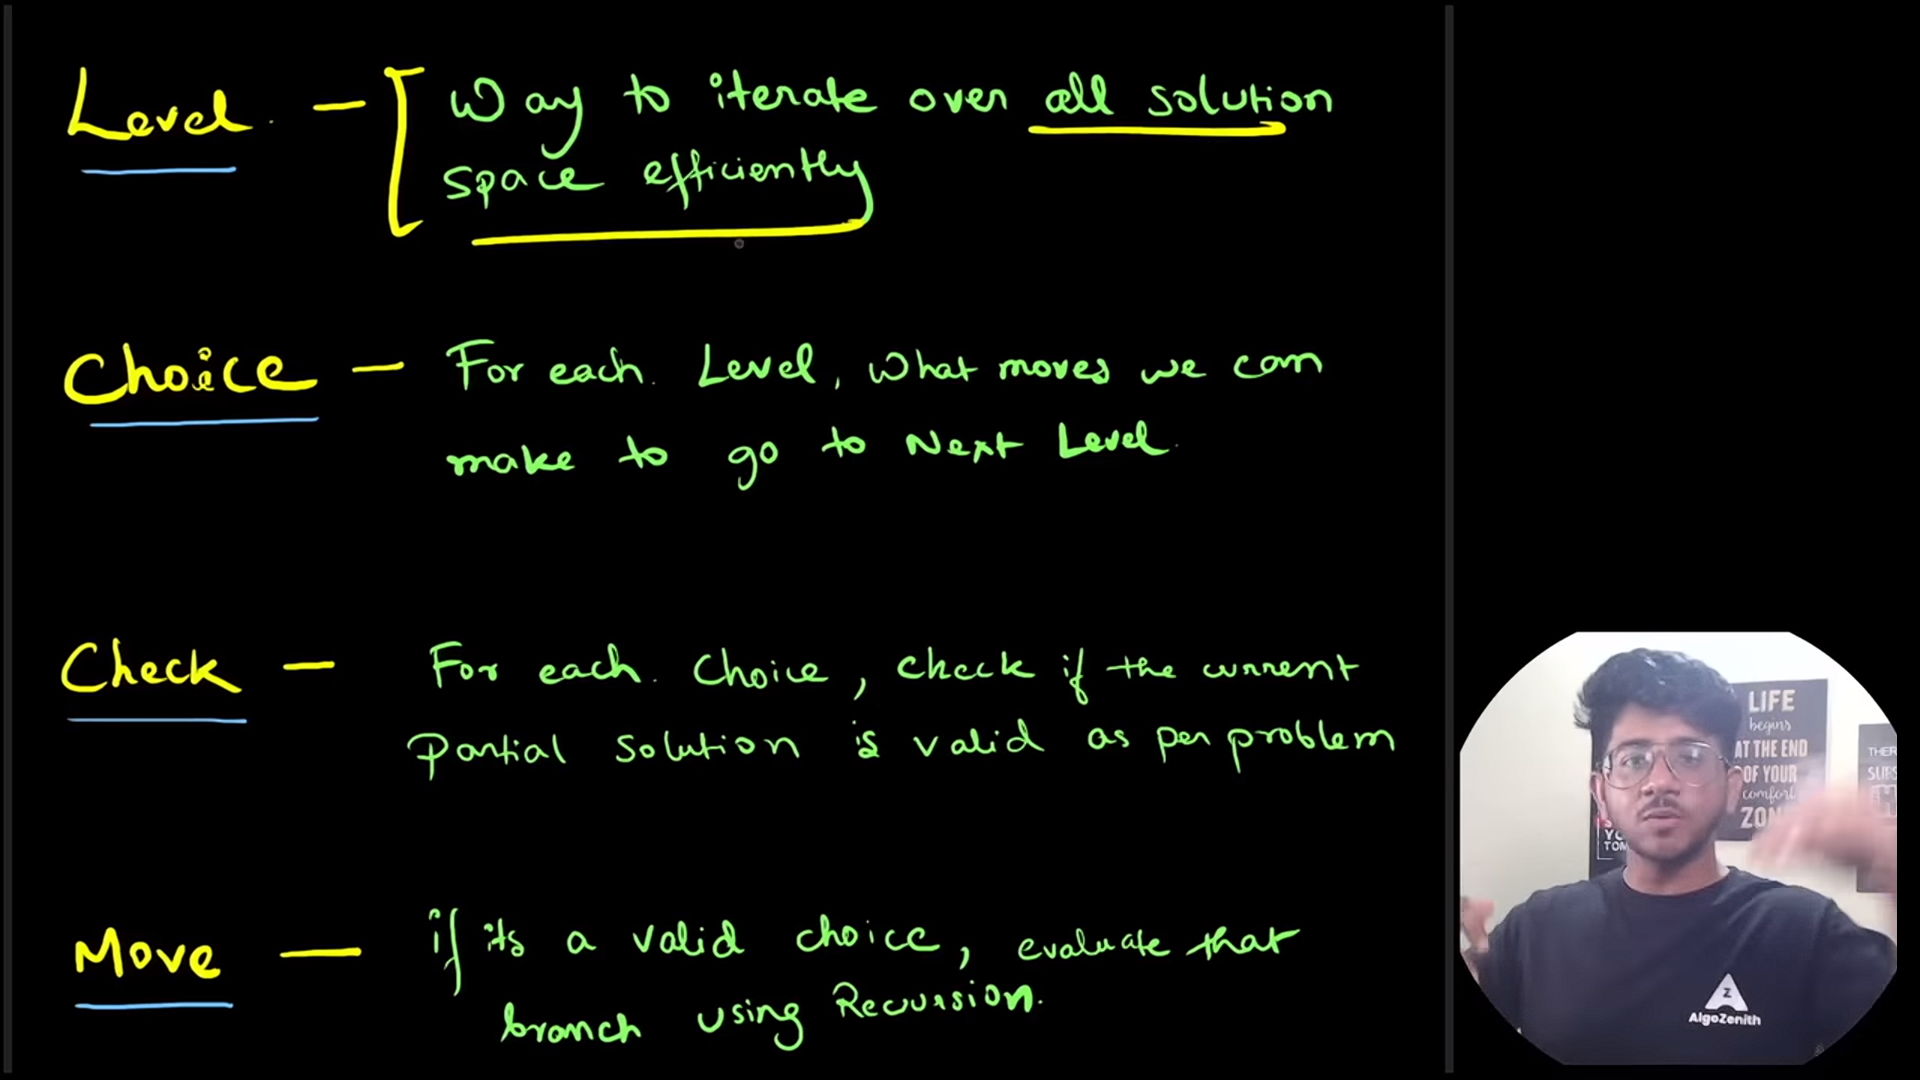 Level - Way to iterate over all solution
space efficiently
Choice - For each Level, What moves we can
make to go to Next Level.
Check - For each Choice, check if the current
Partial Solution is valid as per problem
Move - if its a valid choice, evaluate that
branch using Recursion.
LIFE
begins
AT THE END
OF YOUR
comfort
ZON
THER
SUBS
YO
TOM
Z
AlgoZenith